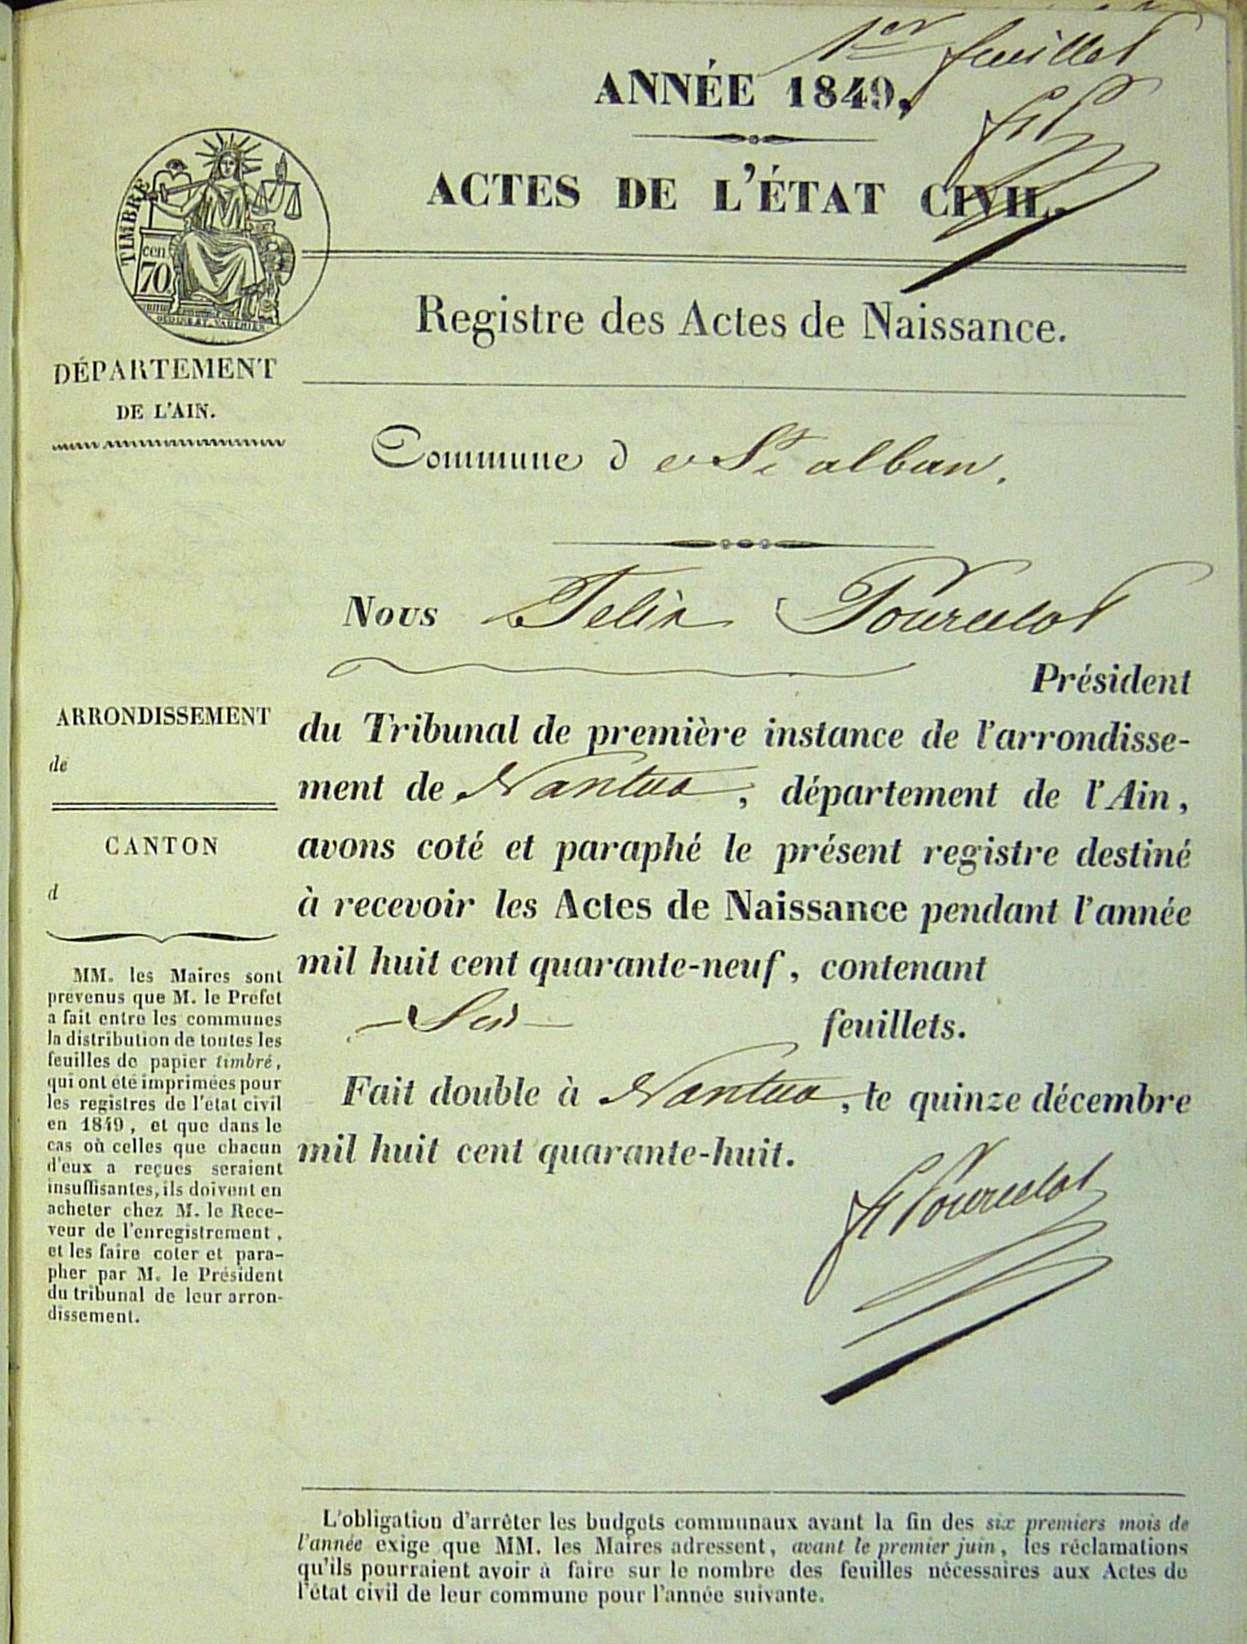 1er feuillet
ANNÉE 1849,
ACTES DE L'ÉTAT CIVIL.
TIMBRE
cen
70
Registre des Actes de Naissance.
DÉPARTEMENT
DE L'AIN.
Commune d e St alban.
Nous Felix Pourcelot
Président
du Tribunal de première instance de l'arrondisse-
ment de Nantua, département de l'Ain,
avons coté et paraphé le présent registre destiné
à recevoir les Actes de Naissance pendant l'année
mil huit cent quarante-neuf, contenant
feuillets.
Fait double à Nantua, le quinze décembre
mil huit cent quarante-huit.
F Pourcelot
ARRONDISSEMENT
de
CANTON
d
MM. les Maires sont
prévenus que M. le Préfet
a fait entre les communes
la distribution de toutes les
feuilles de papier timbré,
qui ont été imprimées pour
les registres de l'état civil
en 1849, et que dans le
cas où celles que chacun
d'eux a reçues seraient
insuffisantes, ils doivent en
acheter chez M. le Rece-
veur de l'enregistrement,
et les faire coter et para-
pher par M. le Président
du tribunal de leur arron-
dissement.
L'obligation d'arrêter les budgets communaux avant la fin des six premiers mois de
l'année exige que MM. les Maires adressent, avant le premier juin, les réclamations
qu'ils pourraient avoir à faire sur le nombre des feuilles nécessaires aux Actes de
l'état civil de leur commune pour l'année suivante.